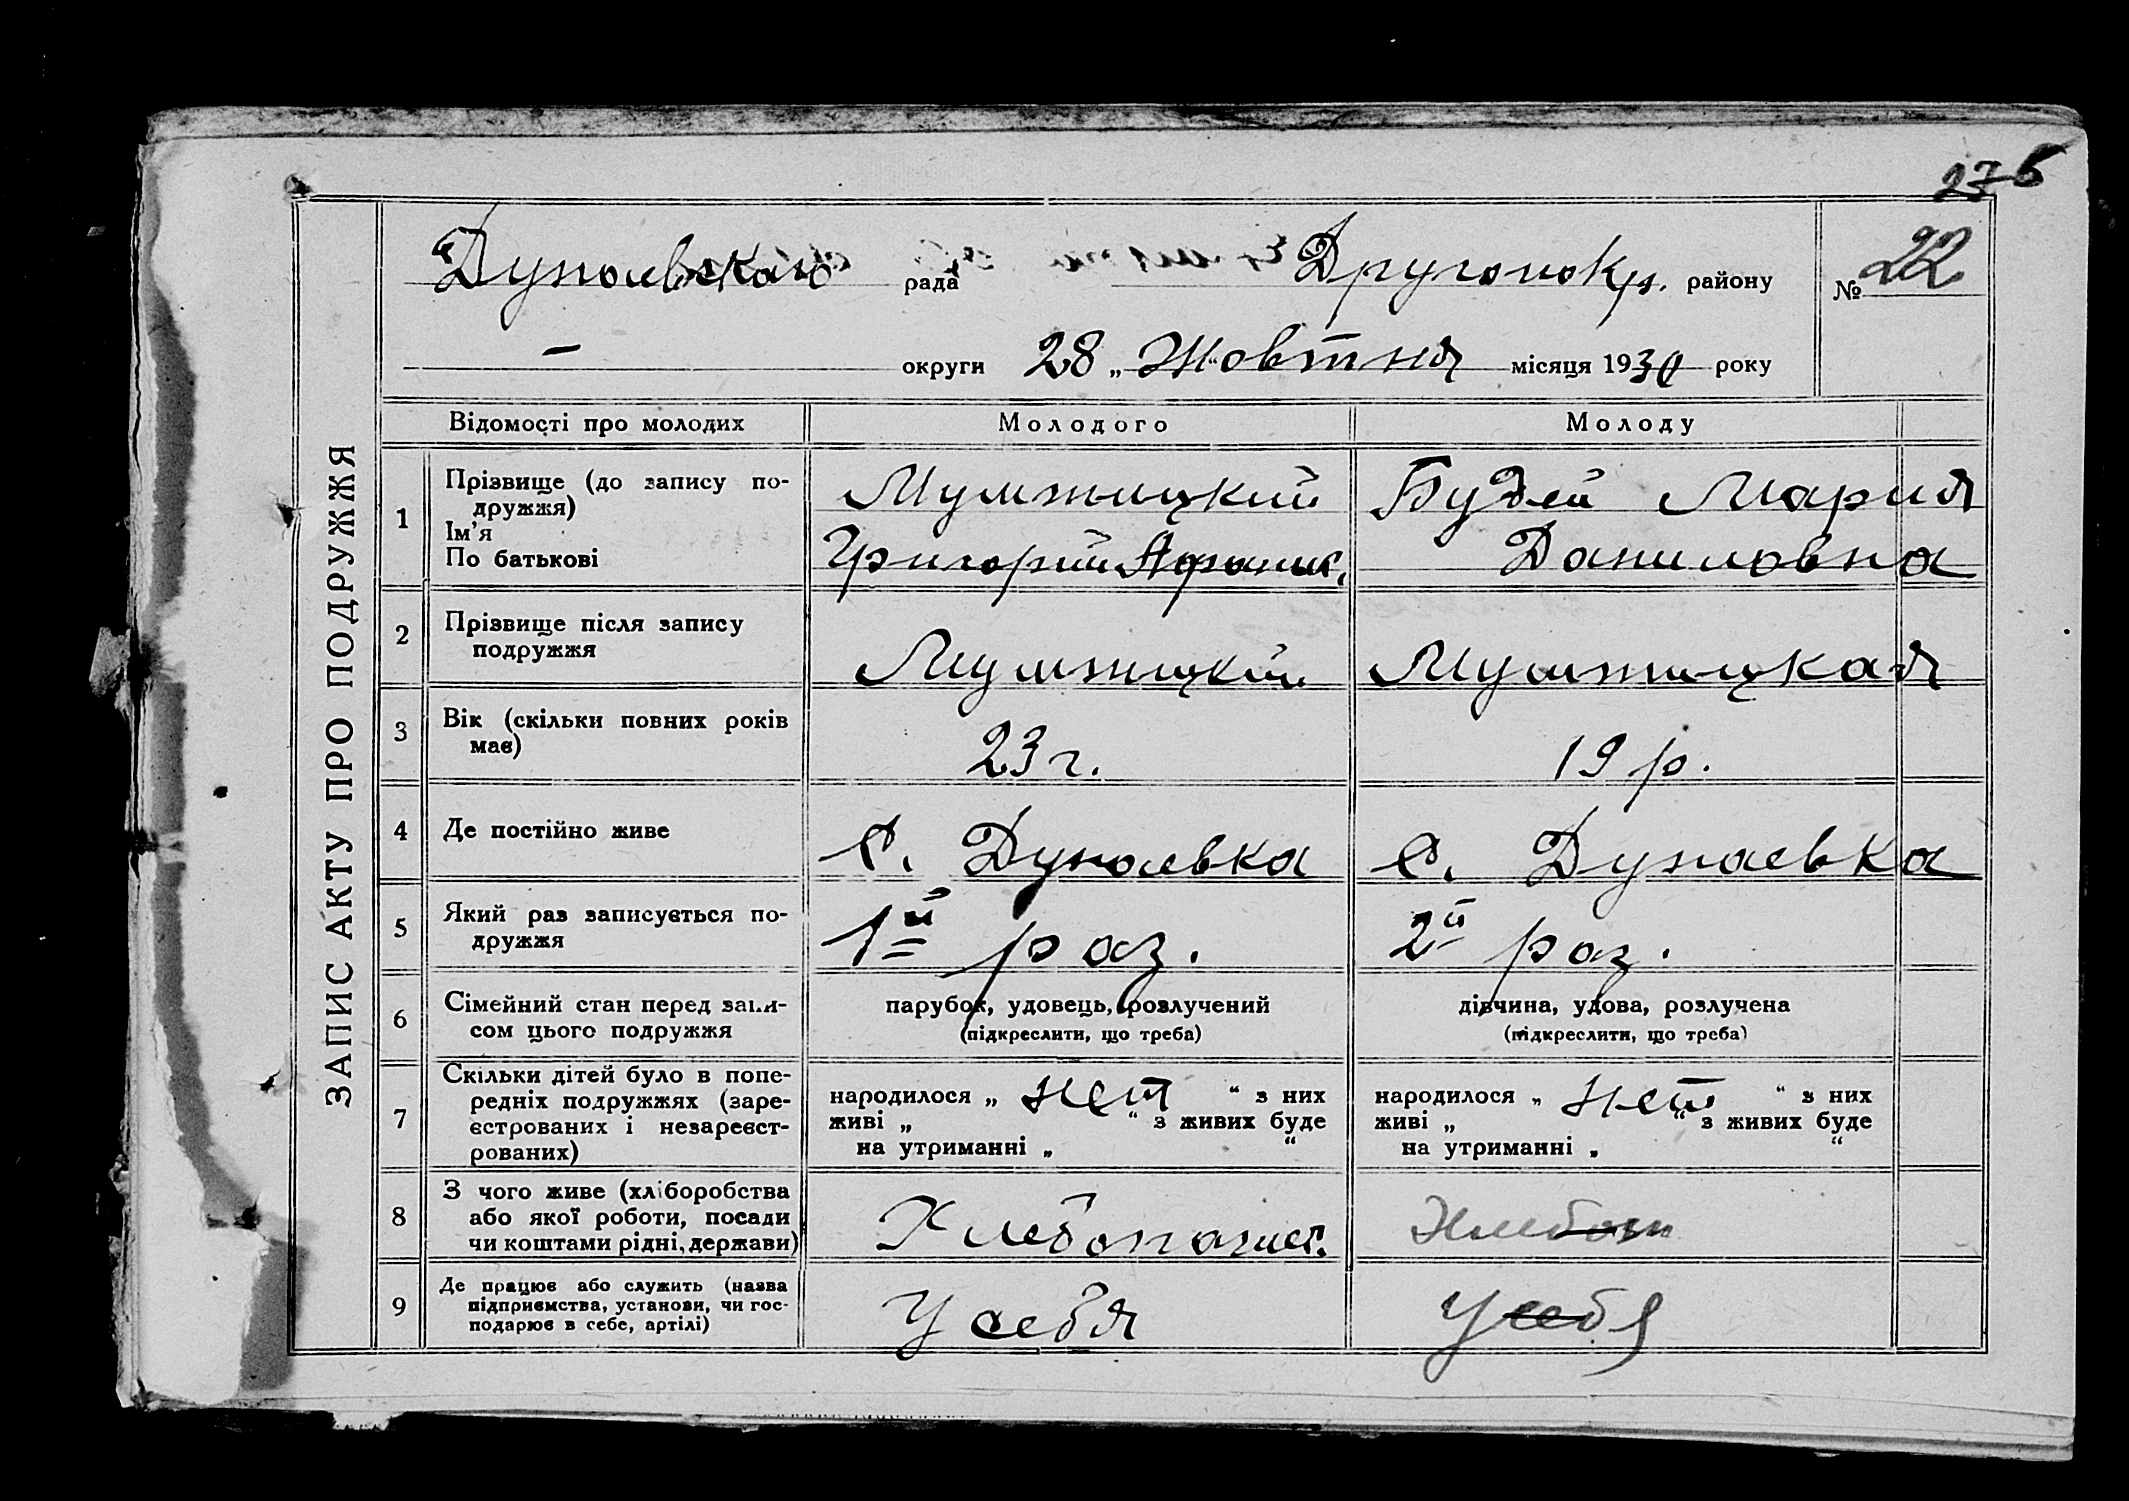 276
Дунаевская рада Другонокр. району № 22
— округи 28 „ Жовтня місяця 1930 року
ЗАПИС АКТУ ПРО ПОДРУЖЖЯ
Відомості про молодих Молодого Молоду
1 Прізвище (до запису подружжя) Ім'я По батькові
Григорий Будей Мария
Даниловна
2 Прізвище після запису
подружжя
3 Вік (скільки повних років
має) 23 г. 19 р.
4 Де постійно живе С. Дунаевка С. Дунаевка
5 Який раз записується по-
дружжя 1й раз. 2й раз.
6 Сімейний стан перед запи-
сом цього подружжя
парубок, удовець, розлучений дівчина, удова, розлучена
(підкреслити, що треба) (підкреслити, що треба)
7 Скільки дітей було в попе-
редніх подружжях (заре-
єстрованих і незареєст-
рованих)
народилося „ нет “ з них народилося „ нет “ з них
живі „ “ з живих буде живі „ “ з живих буде
на утриманні „ “ на утриманні „ “
8 З чого живе (хліборобства
або якої роботи, посади
чи коштами рідні, держави)
Хлебопашест.
9 Де працює або служить (назва
підприємства, установи, чи гос-
подарює в себе, артілі)
У себя У себя